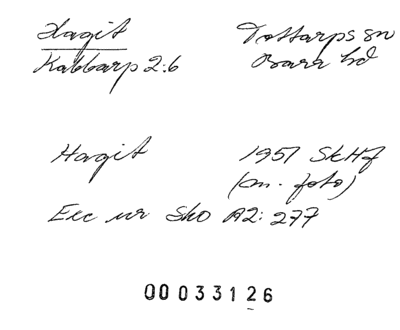 Hagit Tottarps sn
Kabbarp 2:6 Bara hd
Hagit 1957 SkHf
(m. foto)
Exc ur SkO A2: 277
00033126